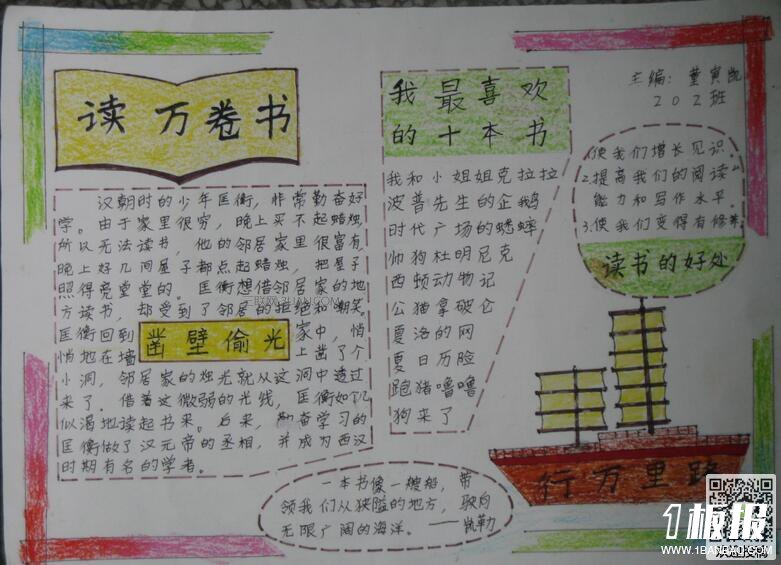 读万卷书
汉朝时的少年匡衡，非常勤奋好
学。由于家里很穷，晚上买不起蜡烛，
所以无法读书，他的邻居家里很富有，
晚上好几间屋子都点起蜡烛，把屋子
照得亮堂堂的。匡衡想借邻居家的地
方读书，却受到了邻居的拒绝和嘲笑。
匡衡回到家中，悄
悄地在墙上凿了个
凿壁偷光
小洞，邻居家的烛光就从这洞中透过
来了。借着这微弱的光线，匡衡如饥
似渴地读起书来。后来，勤奋学习的
匡衡做了汉元帝的丞相，并成为西汉
时期有名的学者。
我最喜欢
的十本书
我和小姐姐克拉拉
波普先生的企鹅
时代广场的蟋蟀
帅狗杜明尼克
西顿动物记
公猫拿破仑
夏洛的网
夏日历险
跑猪噜噜
狗来了
主编：董寅凯
202班
1.使我们增长见识。
2.提高我们的阅读
能力和写作水平。
3.使我们变得有修养
读书的好处
行万里路
一本书像一艘船，带
领我们从狭隘的地方，驶向
无限广阔的海洋。——凯勒
1板报
WWW.1BANBAO.COM